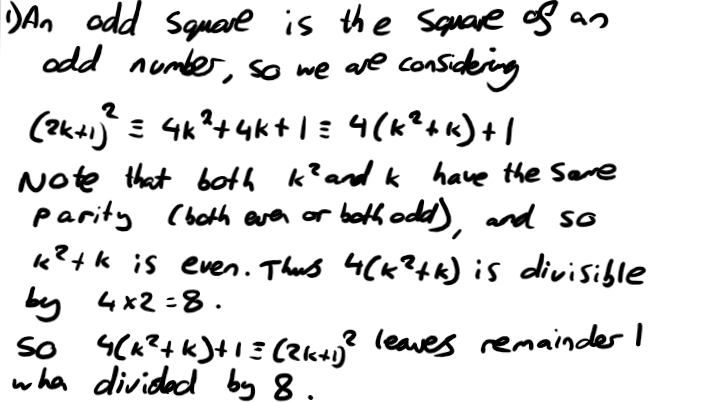 1) An odd square is the square of an
odd number, so we are considering
(2k+1)² ≡ 4k²+4k+1 ≡ 4(k²+k)+1
Note that both k² and k have the same
parity (both even or both odd), and so
k²+k is even. Thus 4(k²+k) is divisible
by 4×2=8.
so 4(k²+k)+1≡(2k+1)² leaves remainder 1
whe divided by 8.